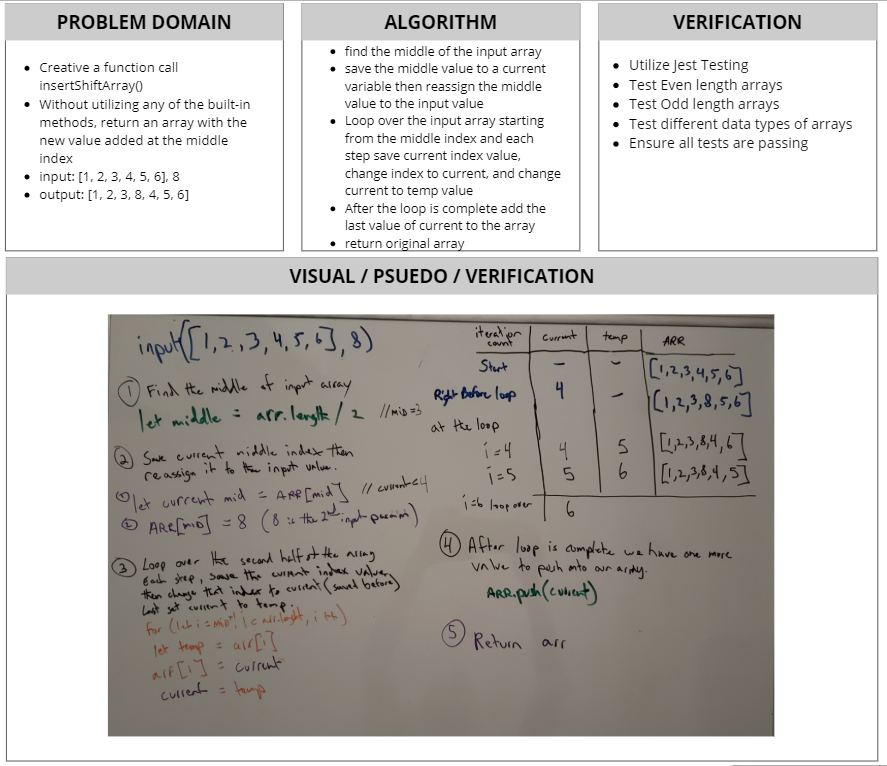 PROBLEM DOMAIN
Creative a function call
insertShiftArray()
Without utilizing any of the built-in
methods, return an array with the
new value added at the middle
index
input: [1, 2, 3, 4, 5, 6], 8
output: [1, 2, 3, 8, 4, 5, 6]
ALGORITHM
find the middle of the input array
save the middle value to a current
variable then reassign the middle
value to the input value
Loop over the input array starting
from the middle index and each
step save current index value,
change index to current, and change
current to temp value
After the loop is complete add the
last value of current to the array
return original array
VERIFICATION
Utilize Jest Testing
Test Even length arrays
Test Odd length arrays
Test different data types of arrays
Ensure all tests are passing
VISUAL / PSUEDO / VERIFICATION
input([1,2,3,4,5,6],8)
① Find the middle of input array
let middle = arr.length / 2 //mid=3
② Save current middle index then
reassign it to the input value.
① let current mid = ARR[mid] // current=4
② ARR[mid] = 8 (8 is the 2nd input param)
③ Loop over the second half of the array
Each step, save the current index value,
then change that index to current (saved before)
last set current to temp.
for (let i = mid+1, i < arr.length, i++)
let temp = arr[i]
arr[i] = current
current = temp
iteration count current temp ARR
Start - - [1,2,3,4,5,6]
Right Before loop 4 - [1,2,3,8,5,6]
at the loop
i=4 4 5 [1,2,3,8,4,6]
i=5 5 6 [1,2,3,8,4,5]
i=6 loop over 6
④ After loop is complete we have one more
value to push into our array.
ARR.push(current)
⑤ Return arr